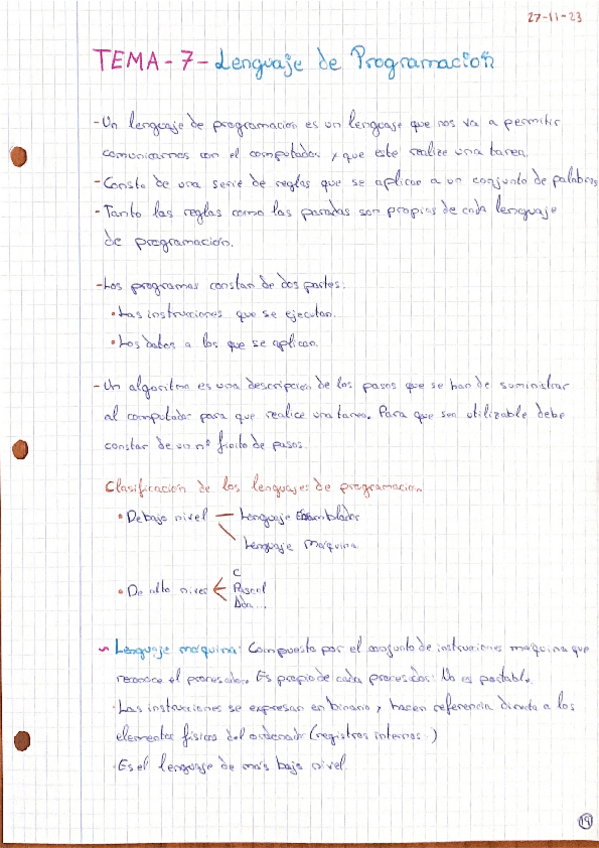 27-11-23
TEMA-7-Lenguaje de Programación
-Un lenguaje de programación es un lenguaje que nos va a permitir
comunicarnos con el computador, y que este realize una tarea.
-Consta de una serie de reglas que se aplican a un conjunto de palabras
-Tanto las reglas como las palabras son propias de cada lenguaje
de programación.
-Los programas constan de dos partes:
•Las instrucciones que se ejecutan.
•Los datos a los que se aplican.
-Un algoritmo es una descripción de los pasos que se han de suministrar
al computador para que realice una tarea. Para que sea utilizable debe
constar de un nº finito de pasos.
Clasificación de los lenguajes de programación
•De bajo nivel — Lenguaje Ensamblador
Lenguaje Máquina
C
•De alto nivel Pascal
Ada...
~ Lenguaje máquina: Compuesto por el conjunto de instrucciones máquina que
reconoce el procesador. Es propio de cada procesador. No es portable.
·Las instrucciones se expresan en binario y hacen referencia directa a los
elementos físicos del ordenador (registros internos.)
·Es el lenguaje de más bajo nivel.
19